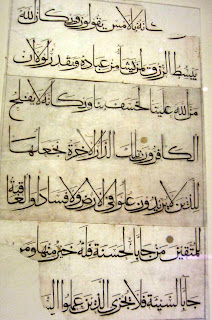 مكانه بالامس يقولون ويكان الله
يبسط الرزق لمن يشا من عباده ويقدر لولا ان
من الله علينا لخسف بنا ويكانه لا يفلح
الكافرون تلك الدار الاخرة نجعلها
للذين لا يريدون علوا في الارض ولا فسادا والعاقبة
للمتقين من جا بالحسنة فله خير منها ومن
جا بالسيئة فلا يجزى الذين عملوا